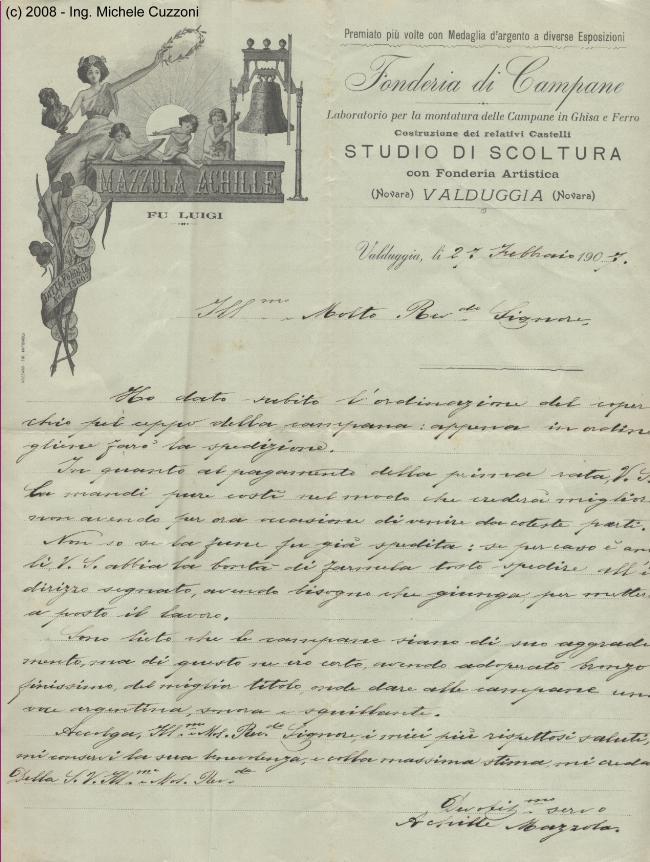 (c) 2008 - Ing. Michele Cuzzoni
Premiato più volte con Medaglia d'argento a diverse Esposizioni
Fonderia di Campane
Laboratorio per la montatura delle Campane in Ghisa e Ferro
Costruzione dei relativi Castelli
STUDIO DI SCOLTURA
con Fonderia Artistica
(Novara) VALDUGGIA (Novara)
MAZZOLA ACHILLE
FU LUIGI
Valduggia, li 27 Febbraio 1907.
Ill.mo e Molto Rev.do Signore,
Ho dato subito l'ordinazione del coper
chio pel ceppo della campana: appena in ordine
gliene farò la spedizione.
In quanto al pagamento della prima rata, V. S.
la mandi pure costì nel modo che crederà miglior
non avendo per ora occasione di venire da coteste parti.
Non so se la fune fu già spedita: se per caso è
li V. S. abbia la bontà di farmela tosto spedire all'i
dirizzo segnato, avendo bisogno che giunga per metter
a posto il lavoro.
Sono lieto che le campane siano di suo aggradi
mento, ma di questo ne ero certo, avendo adoperato bronzo
finissimo, del miglior titolo, onde dare alle campane una
voce argentina, sonora e squillante.
Accolga, Ill.mo e Mol. Rev.do Signore, i miei più rispettosi saluti,
mi conservi la sua benevolenza, e colla massima stima, mi creda
Della S. V. Ill.ma e Mol. Rev.da
Devotis.mo servo
Achille Mazzola.